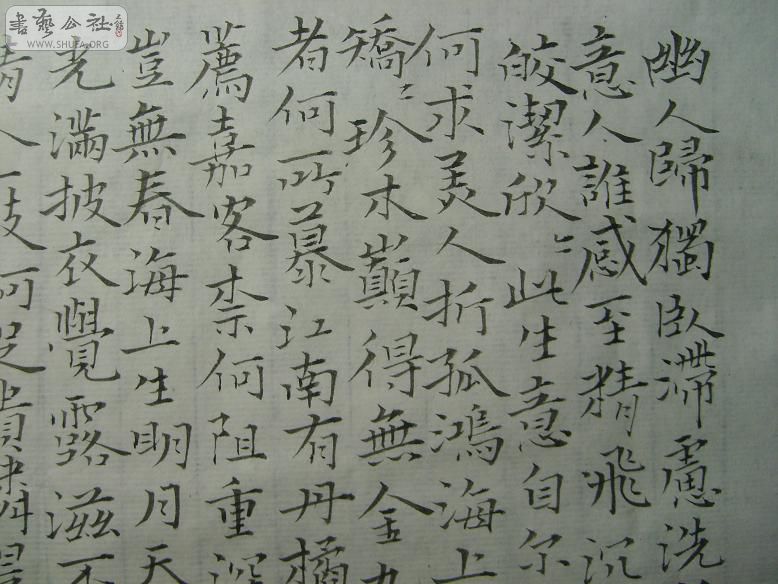 書藝公社
WWW.SHUFA.ORG
幽人歸獨臥滯慮洗
意人誰感至精飛沉
皎潔欣〻此生意自尔
何求美人折孤鴻海上
矯〻珍木巔得無金
者何所慕江南有丹橘
薦嘉客柰何阻重深
豈無春海上生明月天
光滿披衣覺露滋不
枝何足貴